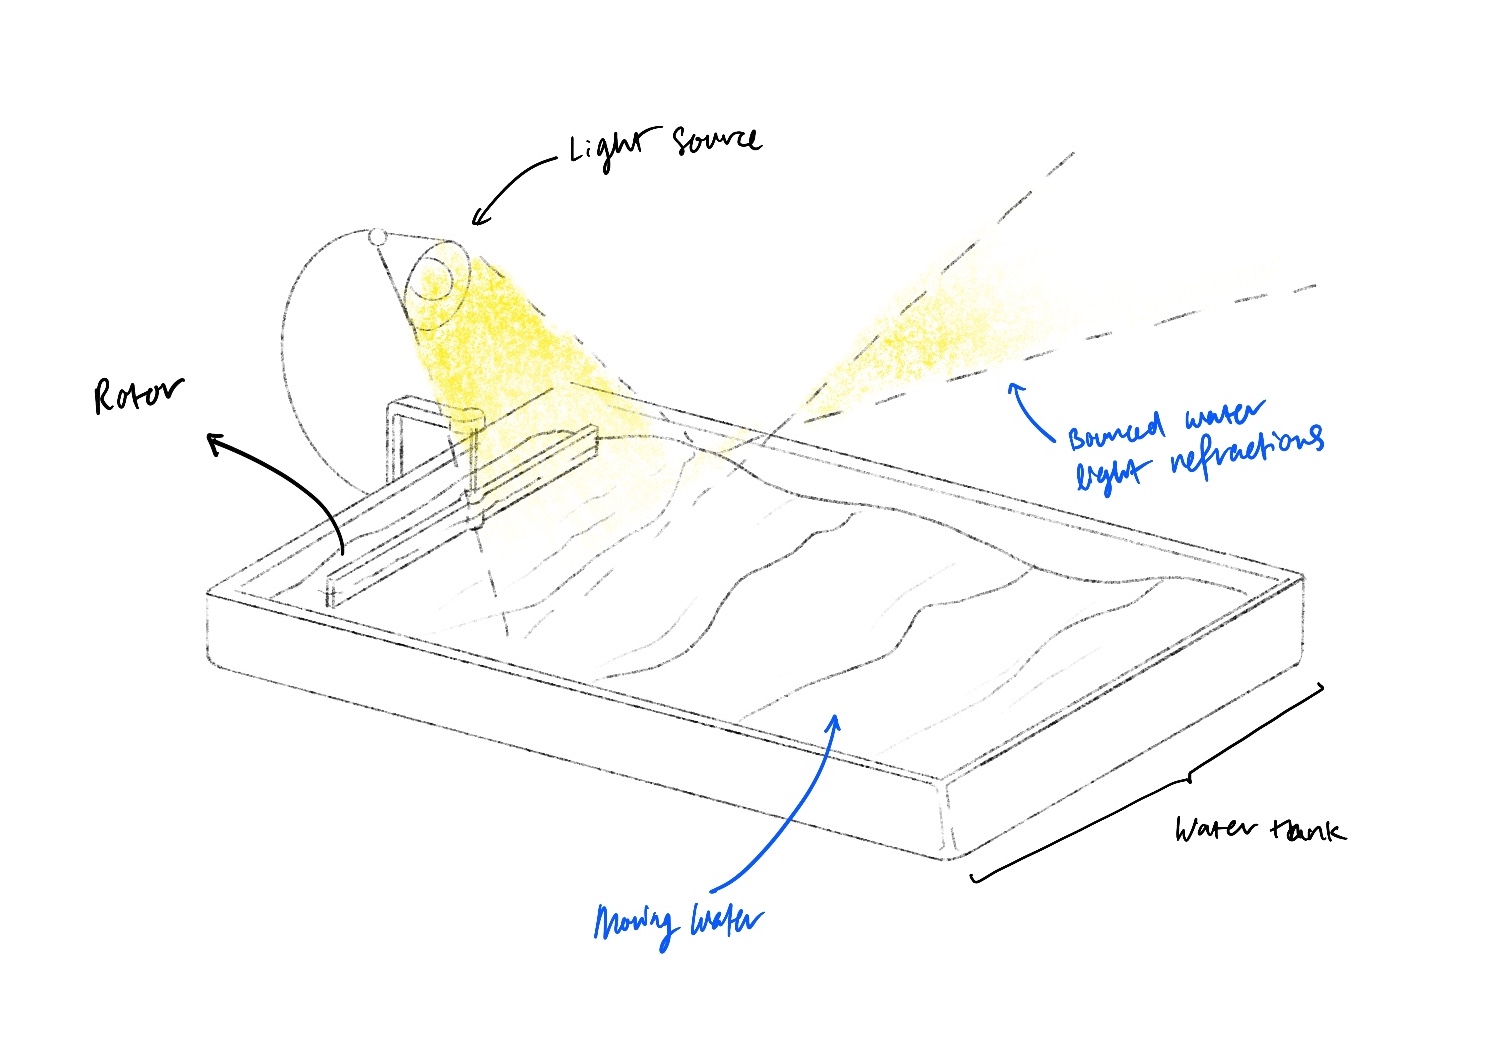 Light Source
Rotor
Bounced water
light refractions
Water tank
Moving Water